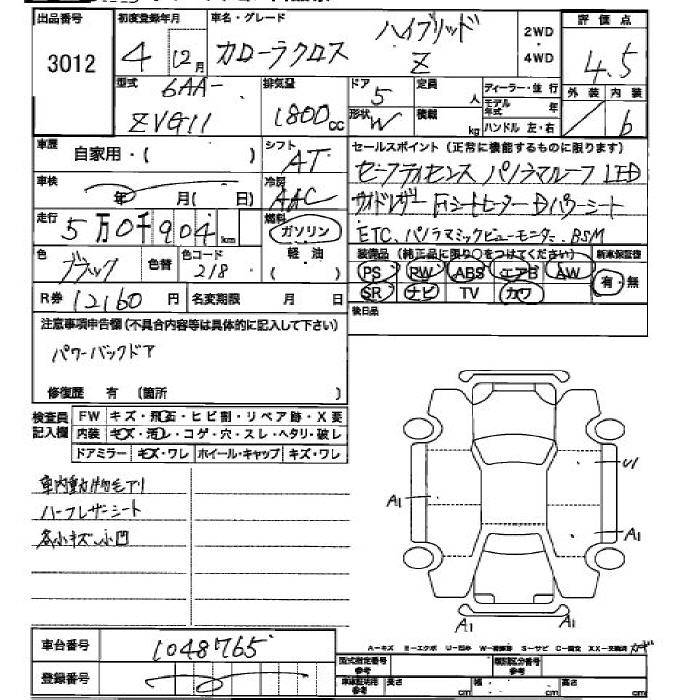 出品番号 初度登録年月 車名・グレード ハイブリッド 2WD・4WD 評価点
3012 4 12月 カローラクロス Z 4.5
型式 6AA- 排気量 ドア 5 定員 人 ディーラー・並行 外装 内装
ZVG11 1800cc 形状 W 積載 kg モデル年式 年 ハンドル 左・右 b
車歴 自家用・( ) シフト AT セールスポイント (正常に機能するものに限ります)
車検 年 月( 日) 冷房 AAC セーフティセンス パノラマルーフ LED
走行 5万0千904km 燃料 ガソリン・軽油 サイドレザー Fシートヒーター Dパワーシート
ETC、パノラミックビューモニター、BSM
色 ブラック 色替 色コード 218 装備品 (純正品に限り○をつけてください) 新車保証書
PS PW ABS エアB AW 有・無
R券 12160円 名変期限 月 日 SR ナビ TV カワ
注意事項申告欄(不具合内容等は具体的に記入して下さい) 後日品
パワーバックドア
修復歴 有 (箇所 )
検査員記入欄 FW キズ・飛石・ヒビ割・リペア跡・X要
内装 キズ・汚レ・コゲ・穴・スレ・ヘタリ・破レ
ドアミラー キズ・ワレ ホイール・キャップ キズ・ワレ
車内動物毛アリ
ハーフレザーシート
各小キズ、小凹
U1
A1
A1
A1 A1
車台番号 1048765
A-キズ E-エクボ U-凹み W-補修跡 S-サビ C-腐食 XX-交換済
登録番号 型式指定番号 参考 類別区分番号 参考
車庫証明用 参考 長さ cm 幅 cm 高さ cm